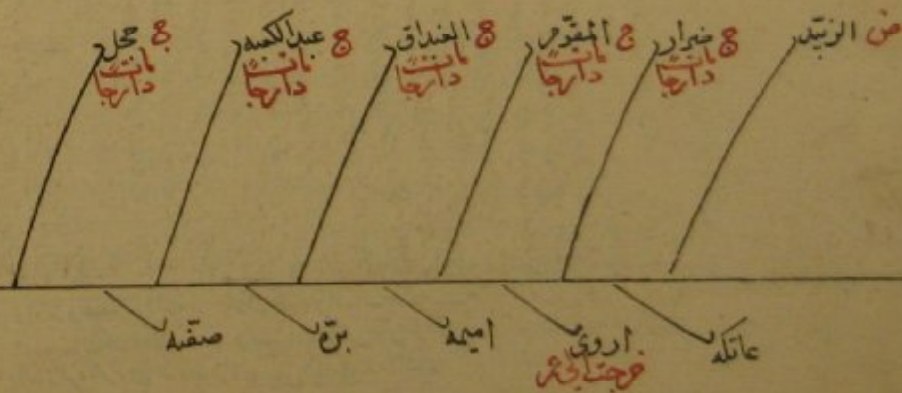 ض الزبير
ج ضرار
مات
دارجا
ج المقوم
مات
دارجا
ج الغيداق
مات
دارجا
ج عبدالكعبه
مات
دارجا
ج حجل
مات
دارجا
عاتكه
اروى
اميمه
برّه
صفيه